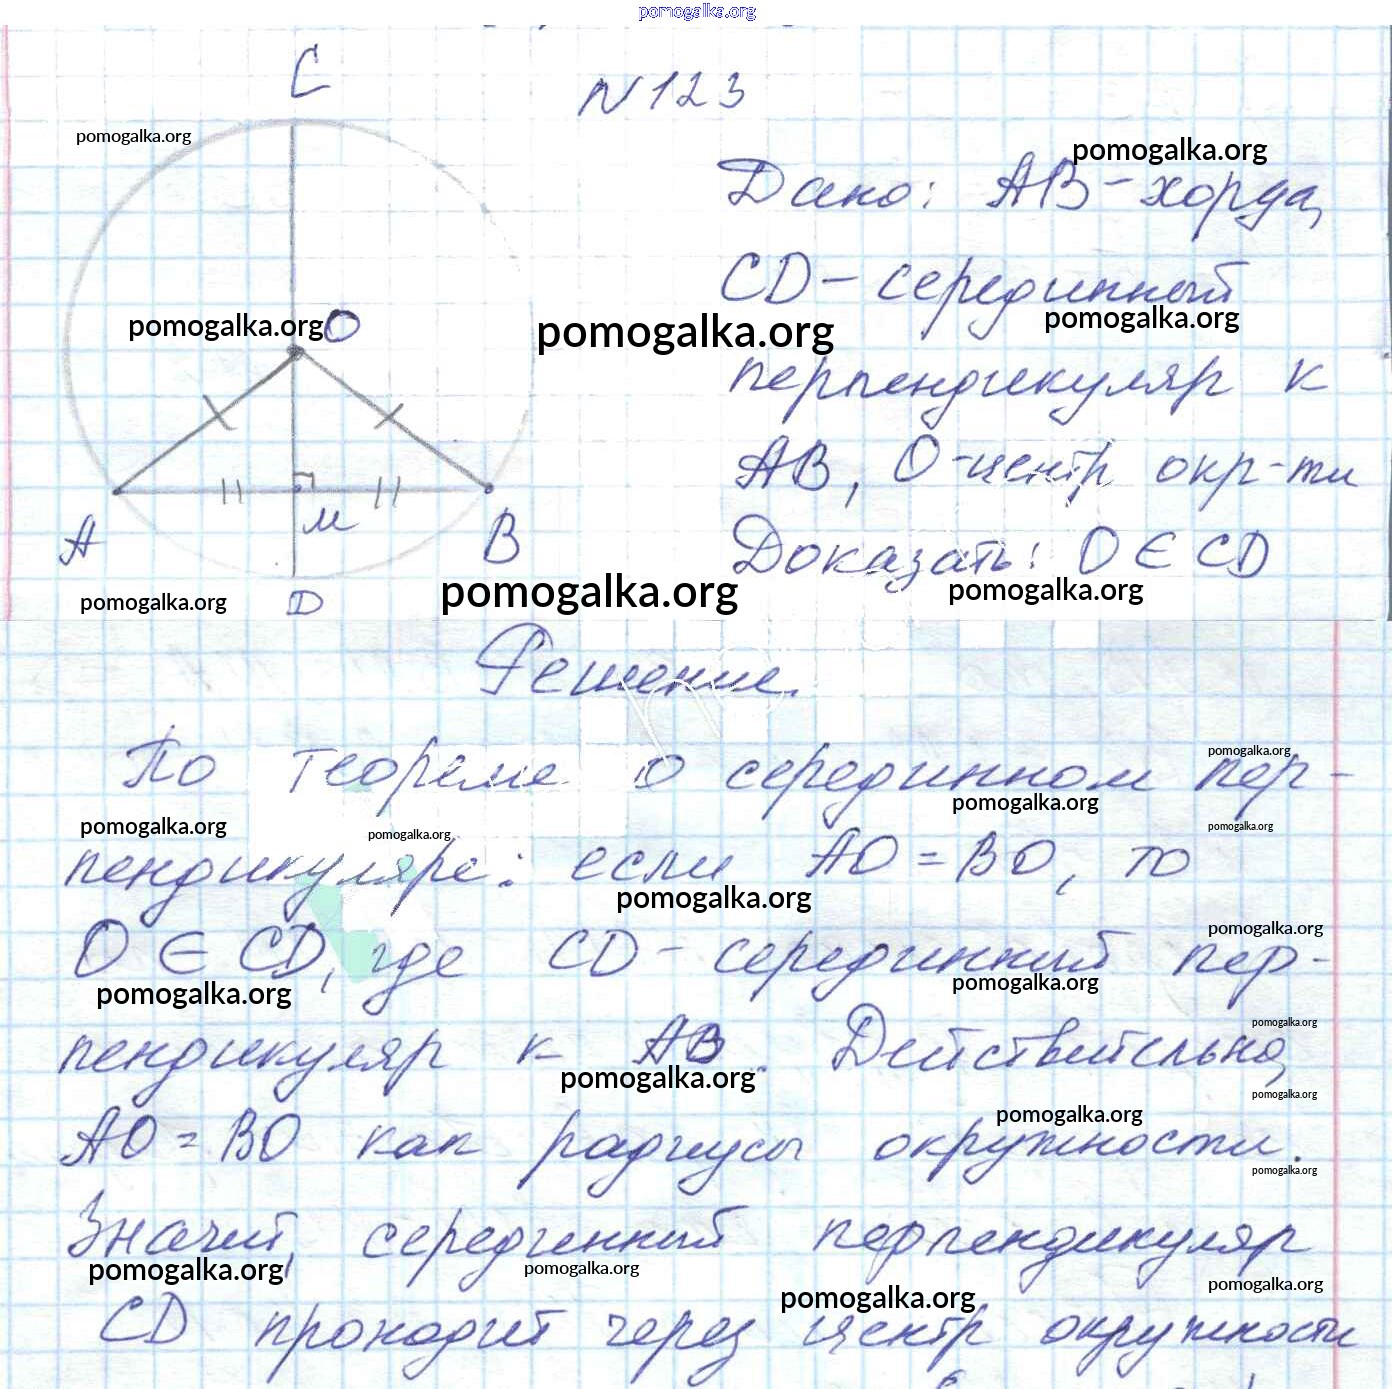 pomogalka.org
C
N 123
pomogalka.org
pomogalka.org
Дано: AB - хорда,
CD - серединный
pomogalka.org
pomogalka.org
O
pomogalka.org
перпендикуляр к
AB, O - центр окр-ти
M
A
B
Доказать: O ∈ CD
pomogalka.org
pomogalka.org
pomogalka.org
D
Решение.
По теореме о серединном пер-
pomogalka.org
pomogalka.org
pomogalka.org
pomogalka.org
pomogalka.org
пендикуляре: если AO = BO, то
pomogalka.org
O ∈ CD, где CD - серединный пер-
pomogalka.org
pomogalka.org
pomogalka.org
пендикуляр к AB. Действительно,
pomogalka.org
pomogalka.org
pomogalka.org
pomogalka.org
AO = BO как радиусы окружности.
pomogalka.org
Значит, серединный перпендикуляр
pomogalka.org
pomogalka.org
pomogalka.org
pomogalka.org
CD проходит через центр окружности